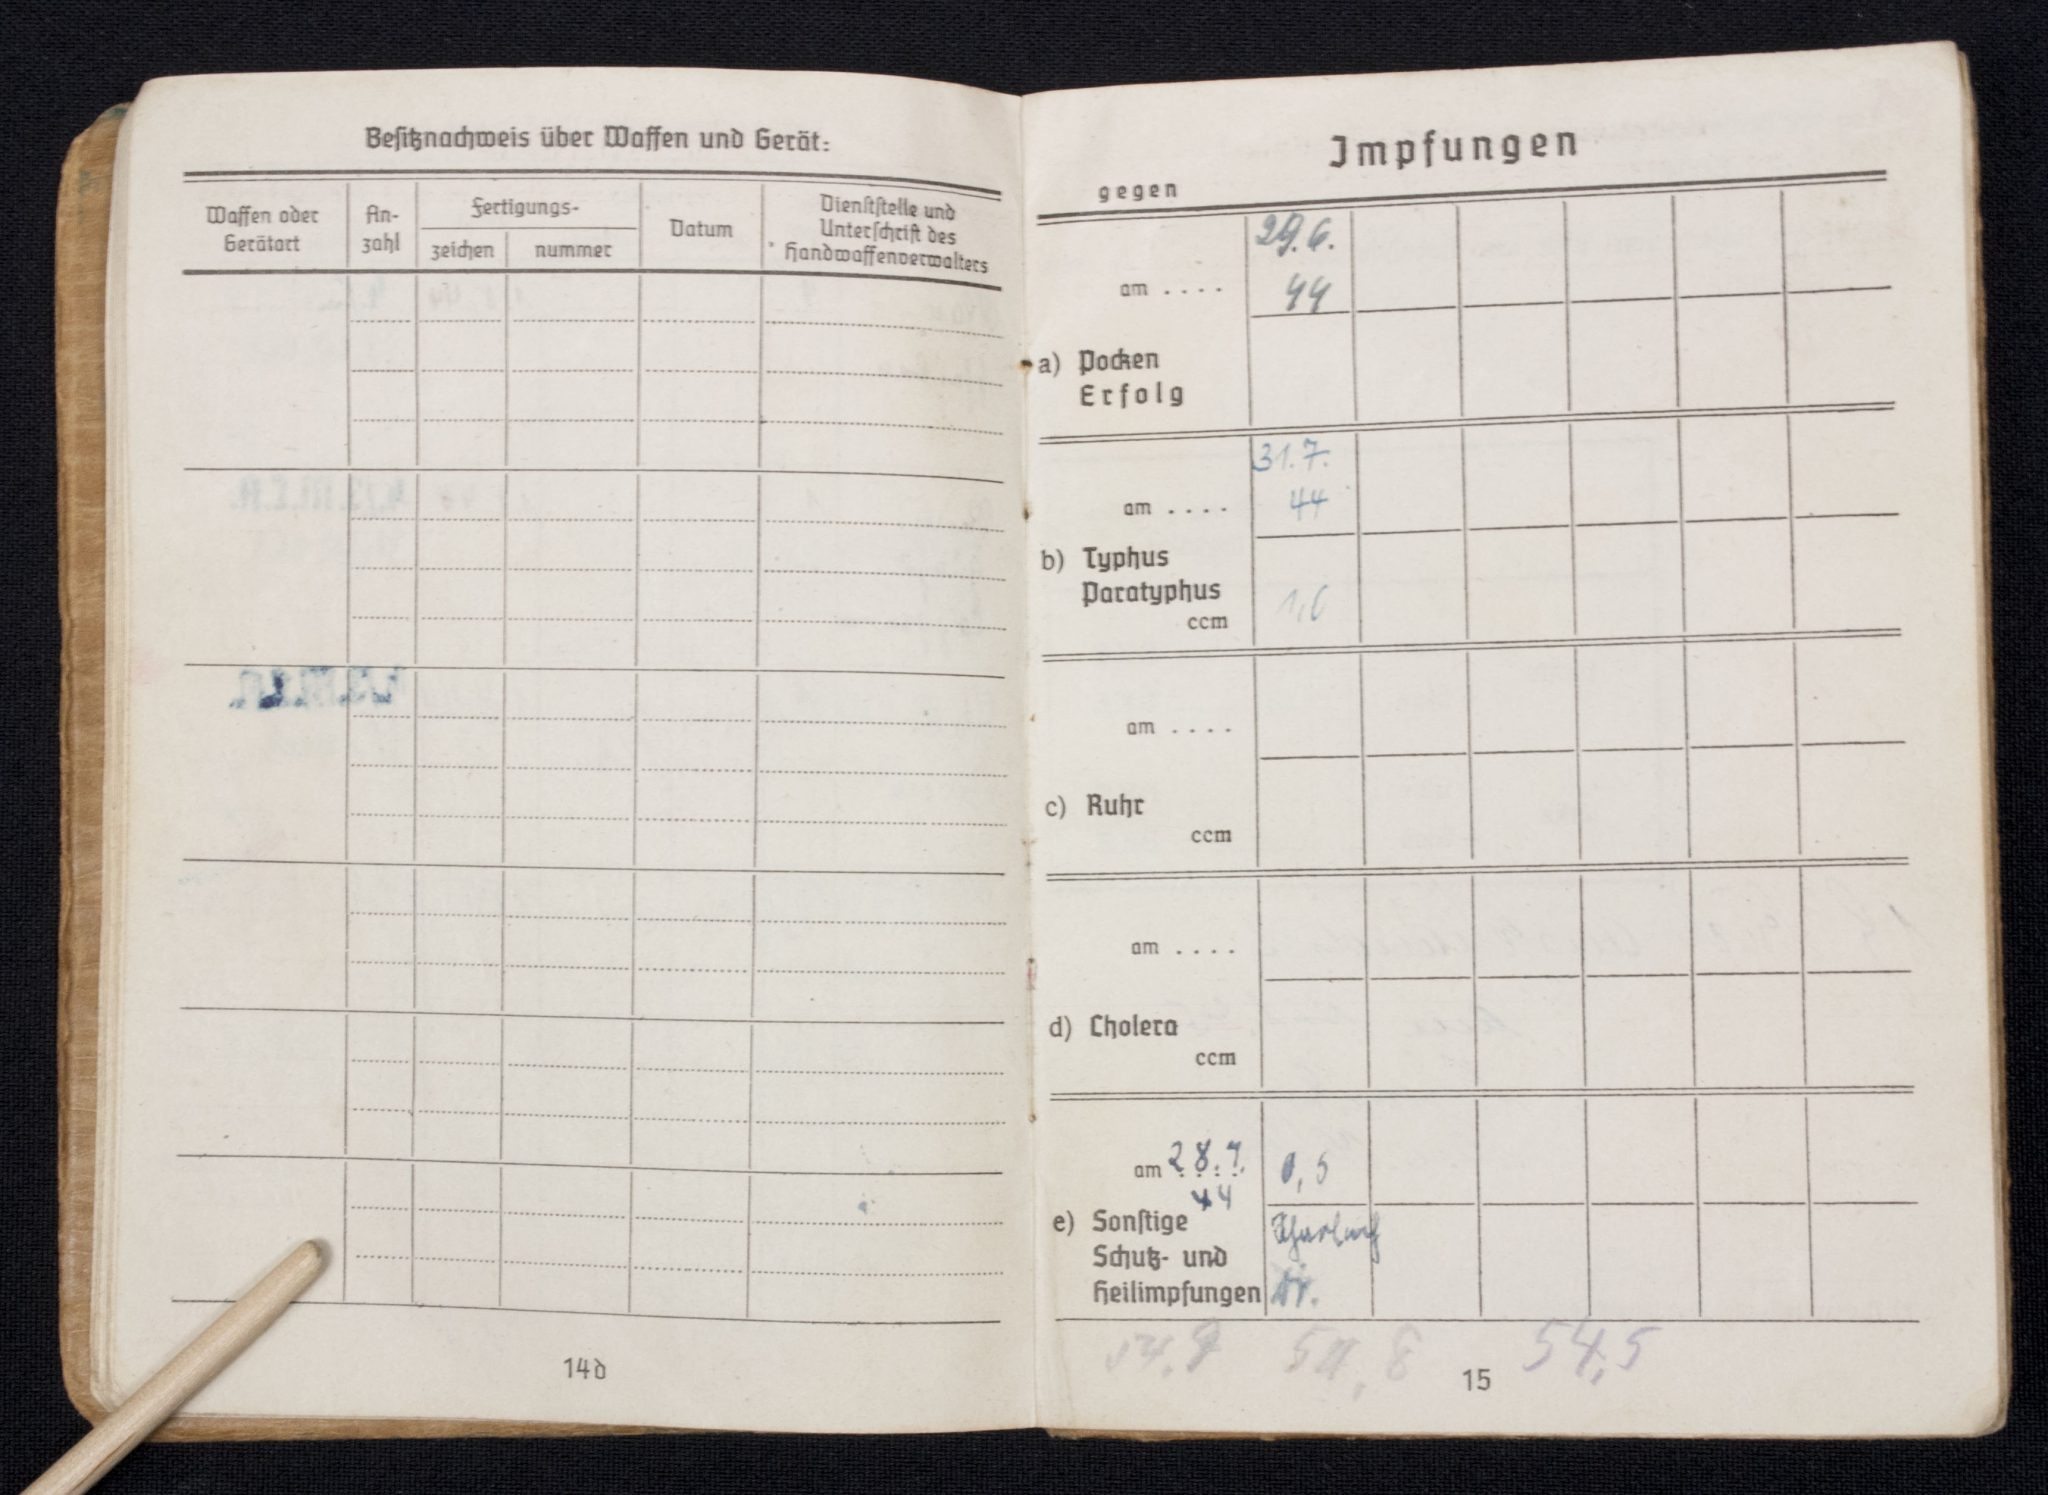 Besitznachweis über Waffen und Gerät:
Waffen oder
Gerätart
An-
zahl
Fertigungs-
zeichen
nummer
Datum
Dienststelle und
Unterschrift des
Handwaffenverwalters
14d
Impfungen
gegen
am . . . .
29.6.
44
a) Pocken
Erfolg
am . . . .
31.7.
44
b) Typhus
Paratyphus
ccm
1,0
am . . . .
c) Ruhr
ccm
am . . . .
d) Cholera
ccm
am 28.7.
44
0,5
e) Sonstige
Schutz- und
Heilimpfungen
Scharlach
54,8
54,5
15